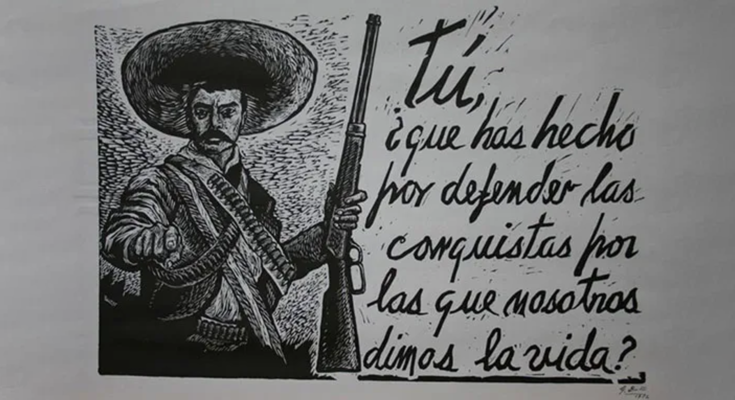 Tú,
¿que has hecho
por defender las
conquistas por
las que nosotros
dimos la vida?